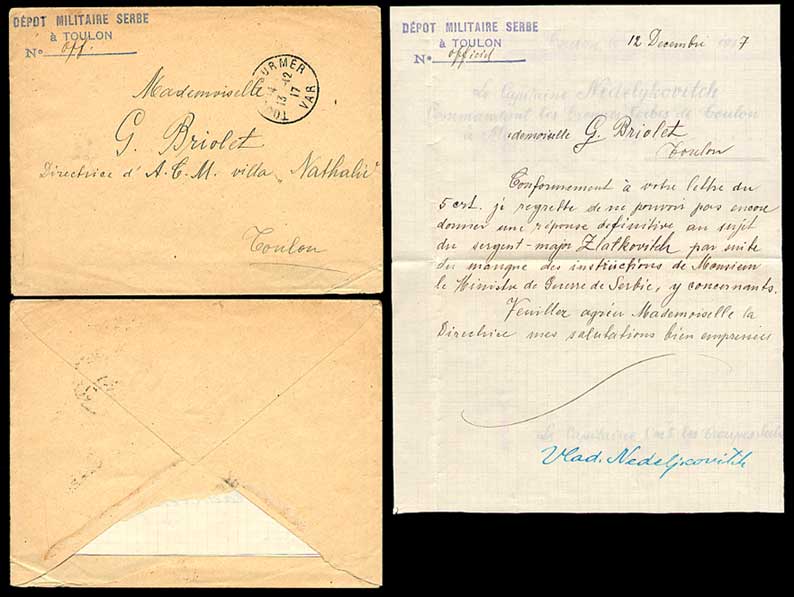 DÉPOT MILITAIRE SERBE
à TOULON
No off.
Mademoiselle
G. Briolet
Directrice d'A.C.M. villa „Nathalie"
Toulon
SUR MER
13 -12
17
VAR
DÉPOT MILITAIRE SERBE
à TOULON
No officiel
12 Decembre 7
Le Capitaine Nedeljkovitch
Commandant les Groupes Serbes de Toulon
à M
demoiselle G. Briolet
Toulon
Conformement à votre lettre du
5 crt. je regrette de ne pouvoir pas encore
donner une réponse definitive au sujet
du sergent-major Zlatkovitch par suite
du manque des instructions de Monsieur
le Ministre de Guerre de Serbie, y concernants.
Veuillez agréer Mademoiselle la
Directrice mes salutations bien empressées
Le Capitaine Cmt les Groupes Serbes
Vlad. Nedeljcovitch